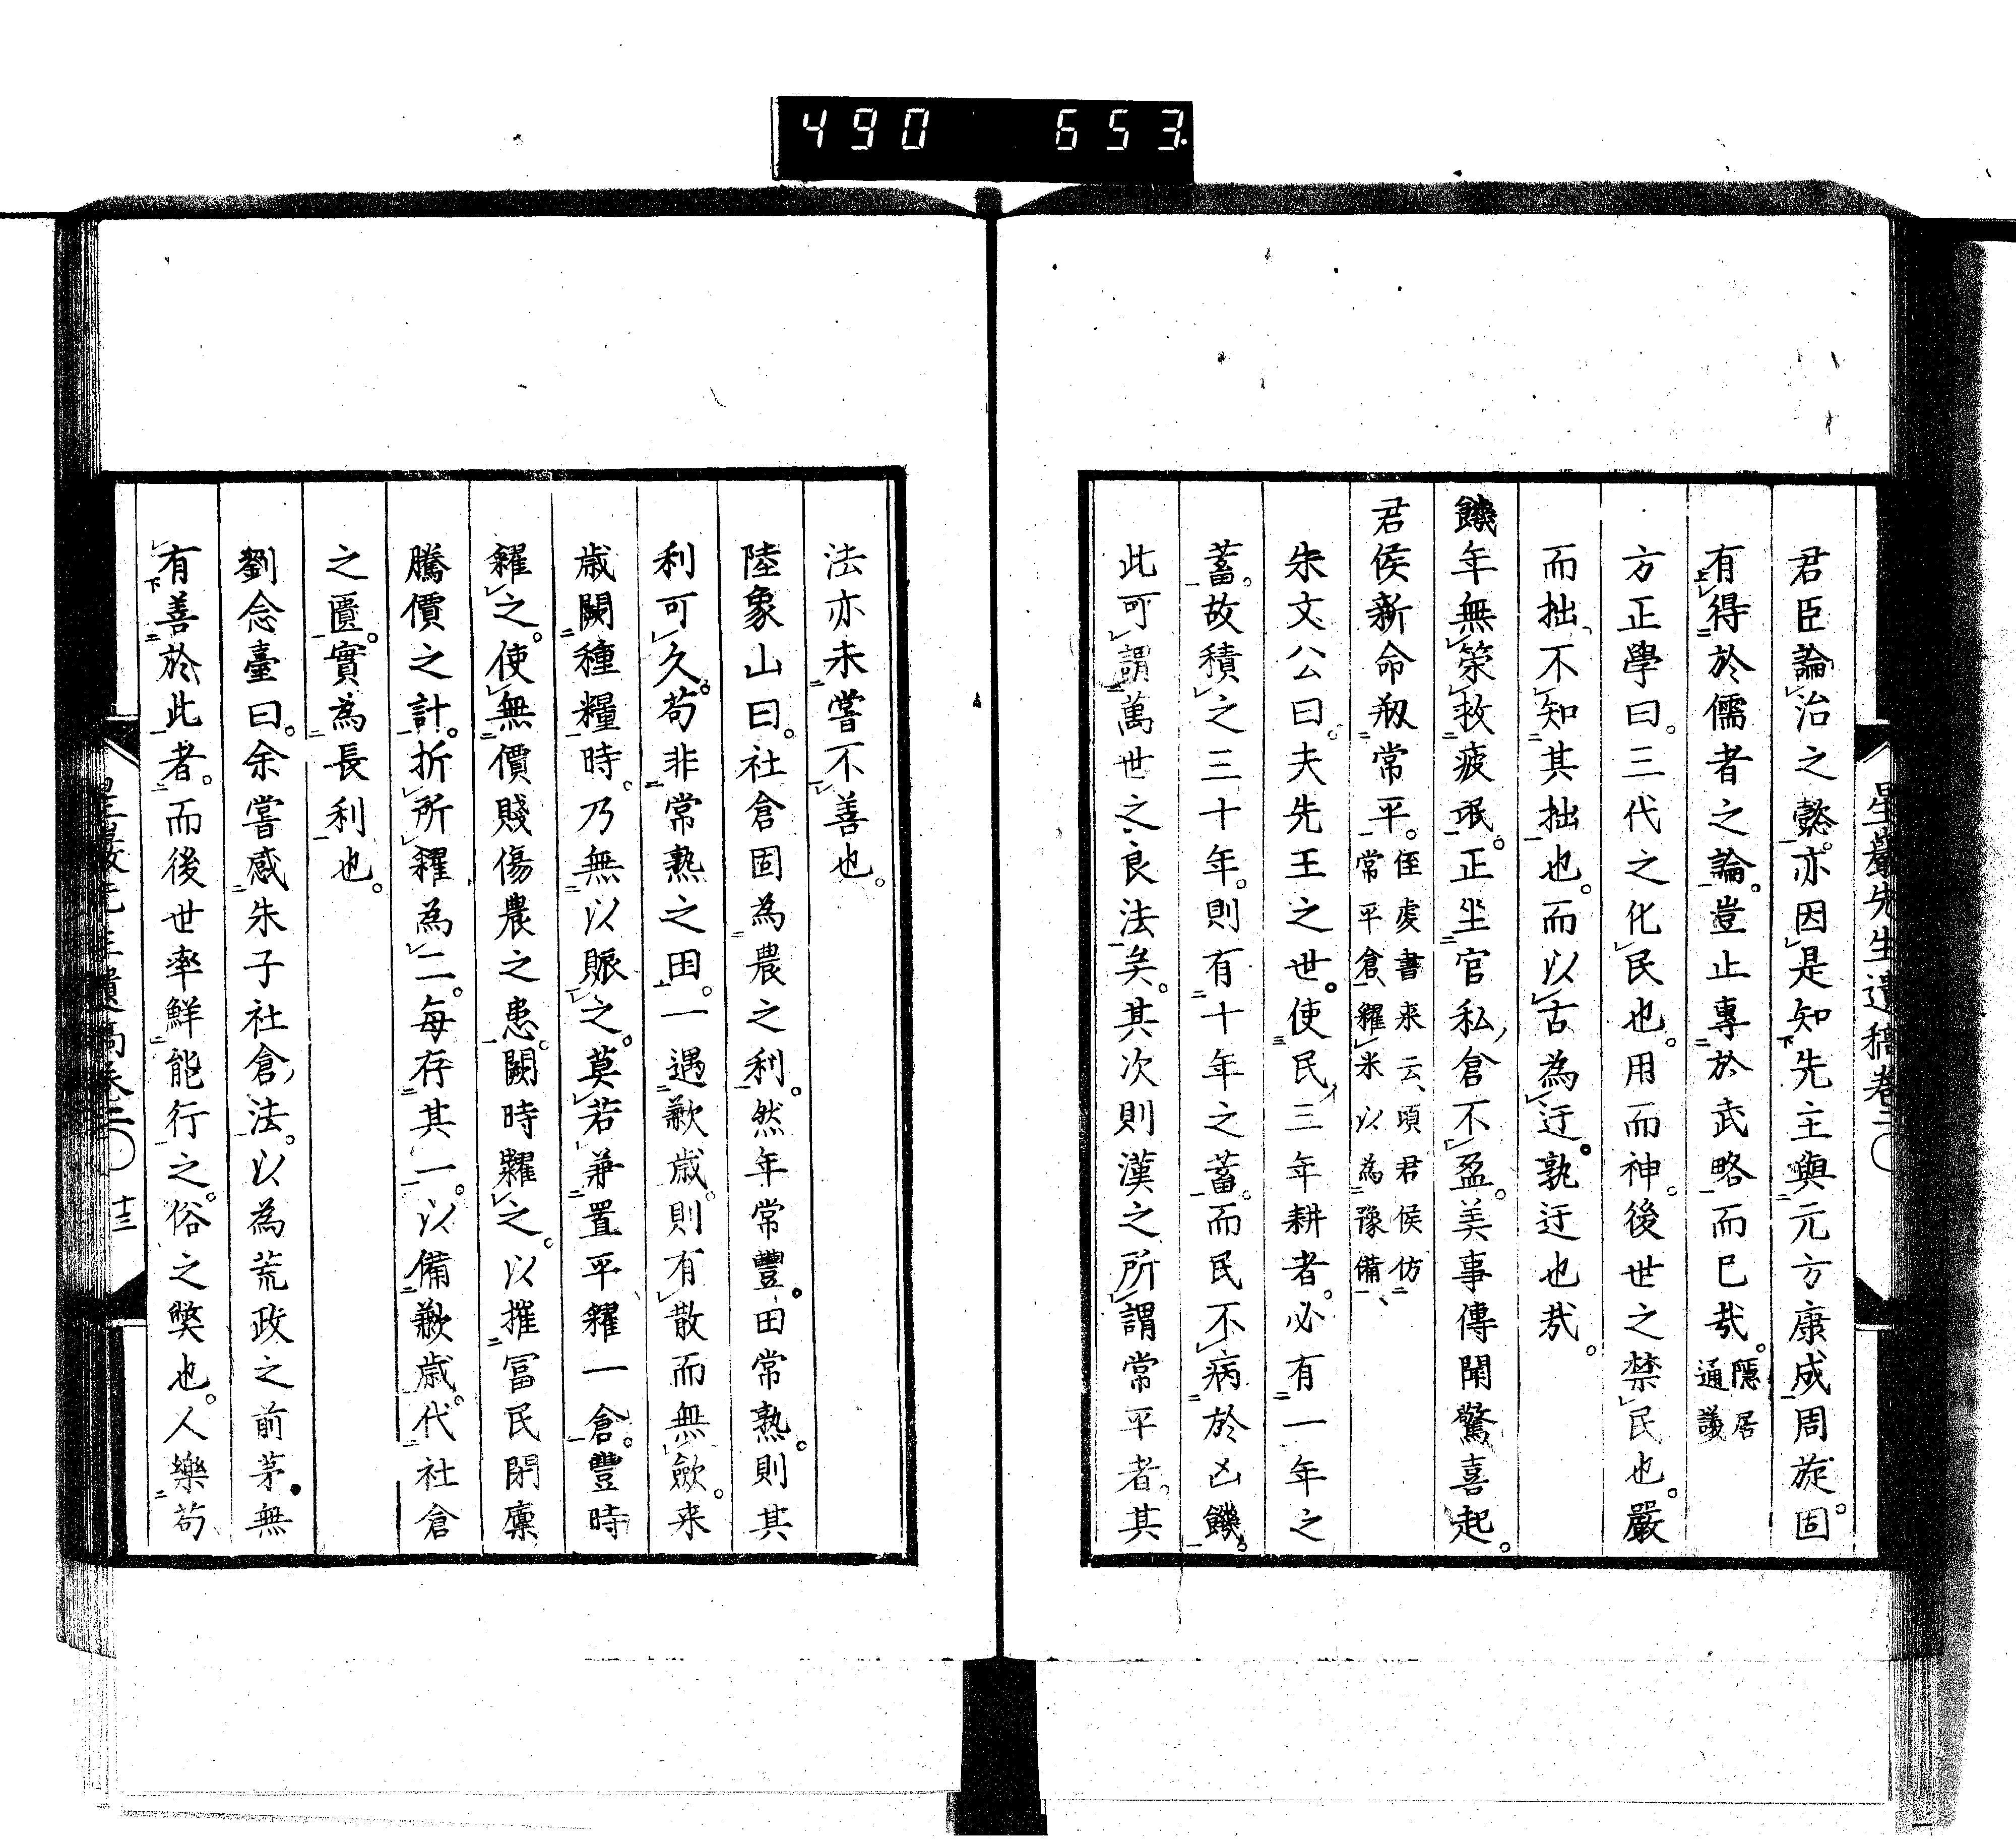 490 653
星巖先生遺稿卷二
君臣論治之懿。亦因是知先主與元方康成周旋。固
有得於儒者之論。豈止專於武略而已哉。隱居通議
方正學曰。三代之化民也。用而神。後世之禁民也。嚴
而拙。不知其拙也。而以古為迂。孰迂也哉。
饑年無策救疲氓。正坐官私倉不盈。美事傳聞驚喜起。
君侯新命剏常平。侄處書來云、頃君侯仿常平倉、糴米以為豫備、
朱文公曰。夫先王之世。使民三年耕者。必有一年之
蓄。故積之三十年。則有十年之蓄。而民不病於凶饑。
此可謂萬世之良法矣。其次則漢之所謂常平者。其
法亦未嘗不善也。
陸象山曰。社倉固為農之利。然年常豐。田常熟。則其
利可久。苟非常熟之田。一遇歉歲。則有散而無歛。来
歳闕種糧時。乃無以賑之。莫若兼置平糴一倉。豐時
糴之。使無價賤傷農之患。闕時糶之。以摧冨民閉廩
騰價之計。折所糴為二。每存其一。以備歉歳。代社倉
之匱。實為長利也。
劉念臺曰。余嘗感朱子社倉法。以為荒政之前茅。無
有善於此者。而後世率鮮能行之。俗之獘也。人樂苟
星巖先生遺稿卷二 十三